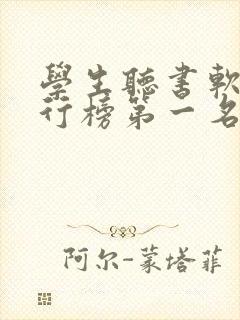 學生聽書軟
行榜第一名
阿尔-蒙塔菲